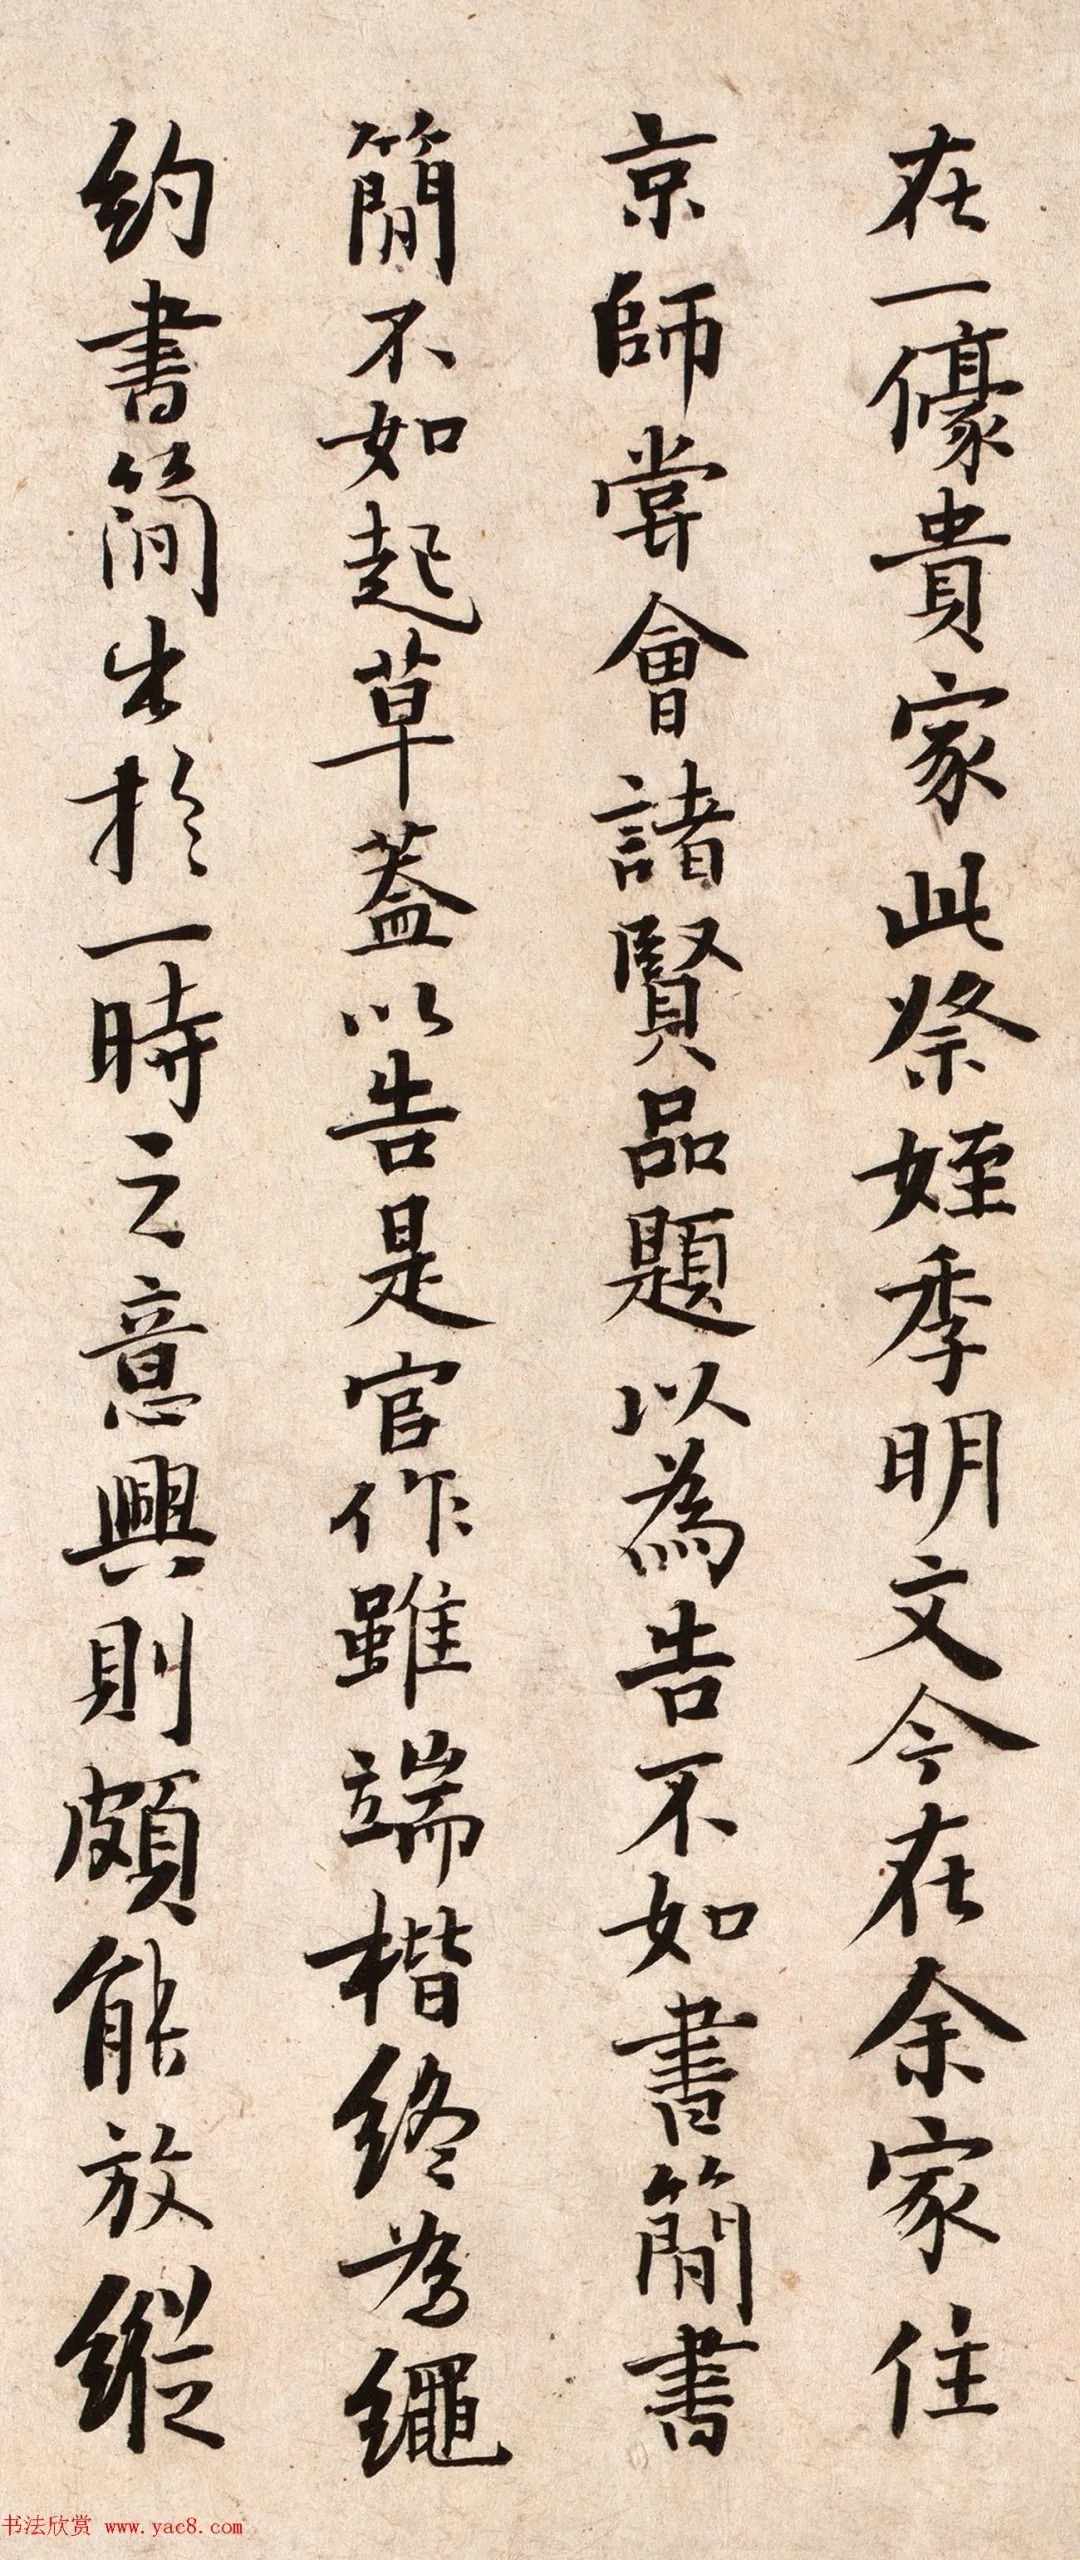 在一儫貴家此祭姪季明文今在余家住
京師嘗會諸賢品題以為告不如書簡書
簡不如起草蓋以告是官作雖端楷終為繩
約書簡出於一時之意興則頗能放縱
书法欣赏 www.yac8.com